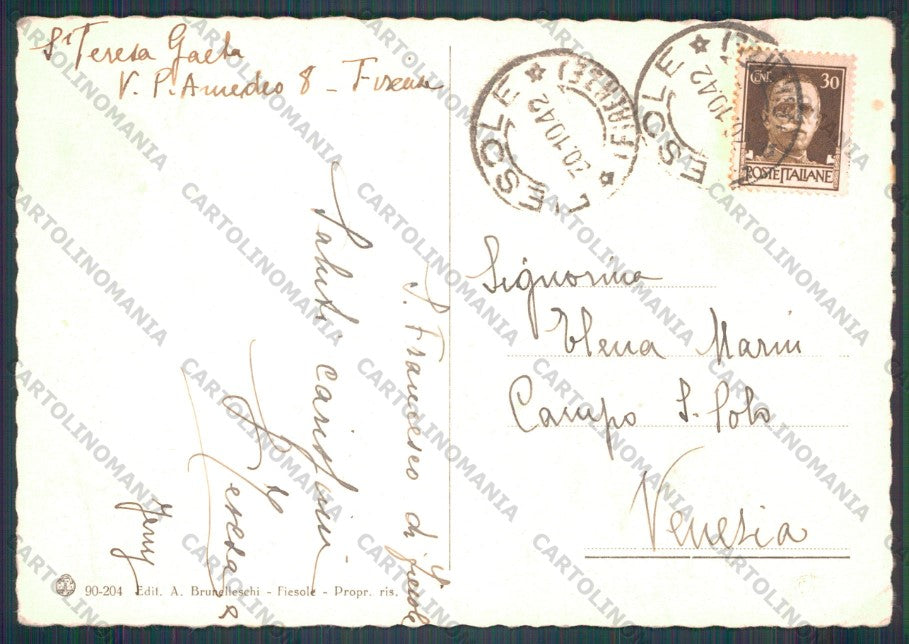 Sa Teresa Gaeta
V. P. Amedeo 8 - Firenze
FIESOLE * (FIRENZE) *
20.10.42
FIESOLE * (FIRENZE)
20.10.42
CENT. 30
POSTE ITALIANE
Signorina
Elena Marin
Campo S. Polo
Venezia
S. Francesco di Fiesole
Saluti carissimi
Teresa
Jenny
90-204 Edit. A. Brunelleschi - Fiesole - Propr. ris.
CARTOLINOMANIA